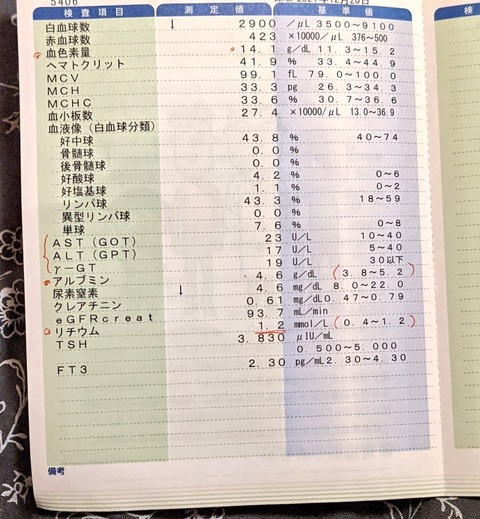 5406 2021年12月20日
検査項目 測定値 基準値 検
白血球数 ↓ 2900 /μL 3500~9100
赤血球数 423 ×10000/μL 376~500
血色素量 14.1 g/dL 11.3~15.2
ヘマトクリット 41.9 % 33.4~44.9
MCV 99.1 fL 79.0~100.0
MCH 33.3 pg 26.3~34.3
MCHC 33.6 % 30.7~36.6
血小板数 27.4 ×10000/μL 13.0~36.9
血液像(白血球分類)
好中球 43.8 % 40~74
骨髄球 0.0 %
後骨髄球 0.0 %
好酸球 4.2 % 0~6
好塩基球 1.1 % 0~2
リンパ球 43.3 % 18~59
異型リンパ球 0.0 %
単球 7.6 % 0~8
AST(GOT) 23 U/L 10~40
ALT(GPT) 17 U/L 5~40
γ-GT 19 U/L 30以下
アルブミン 4.6 g/dL (3.8~5.2)
尿素窒素 ↓ 4.6 mg/dL 8.0~22.0
クレアチニン 0.61 mg/dL 0.47~0.79
eGFRcreat 93.7 mL/min
リチウム 1.2 mmol/L (0.4~1.2)
TSH 3.830 μIU/mL
0.500~5.000
FT3 2.30 pg/mL 2.30~4.30
備考